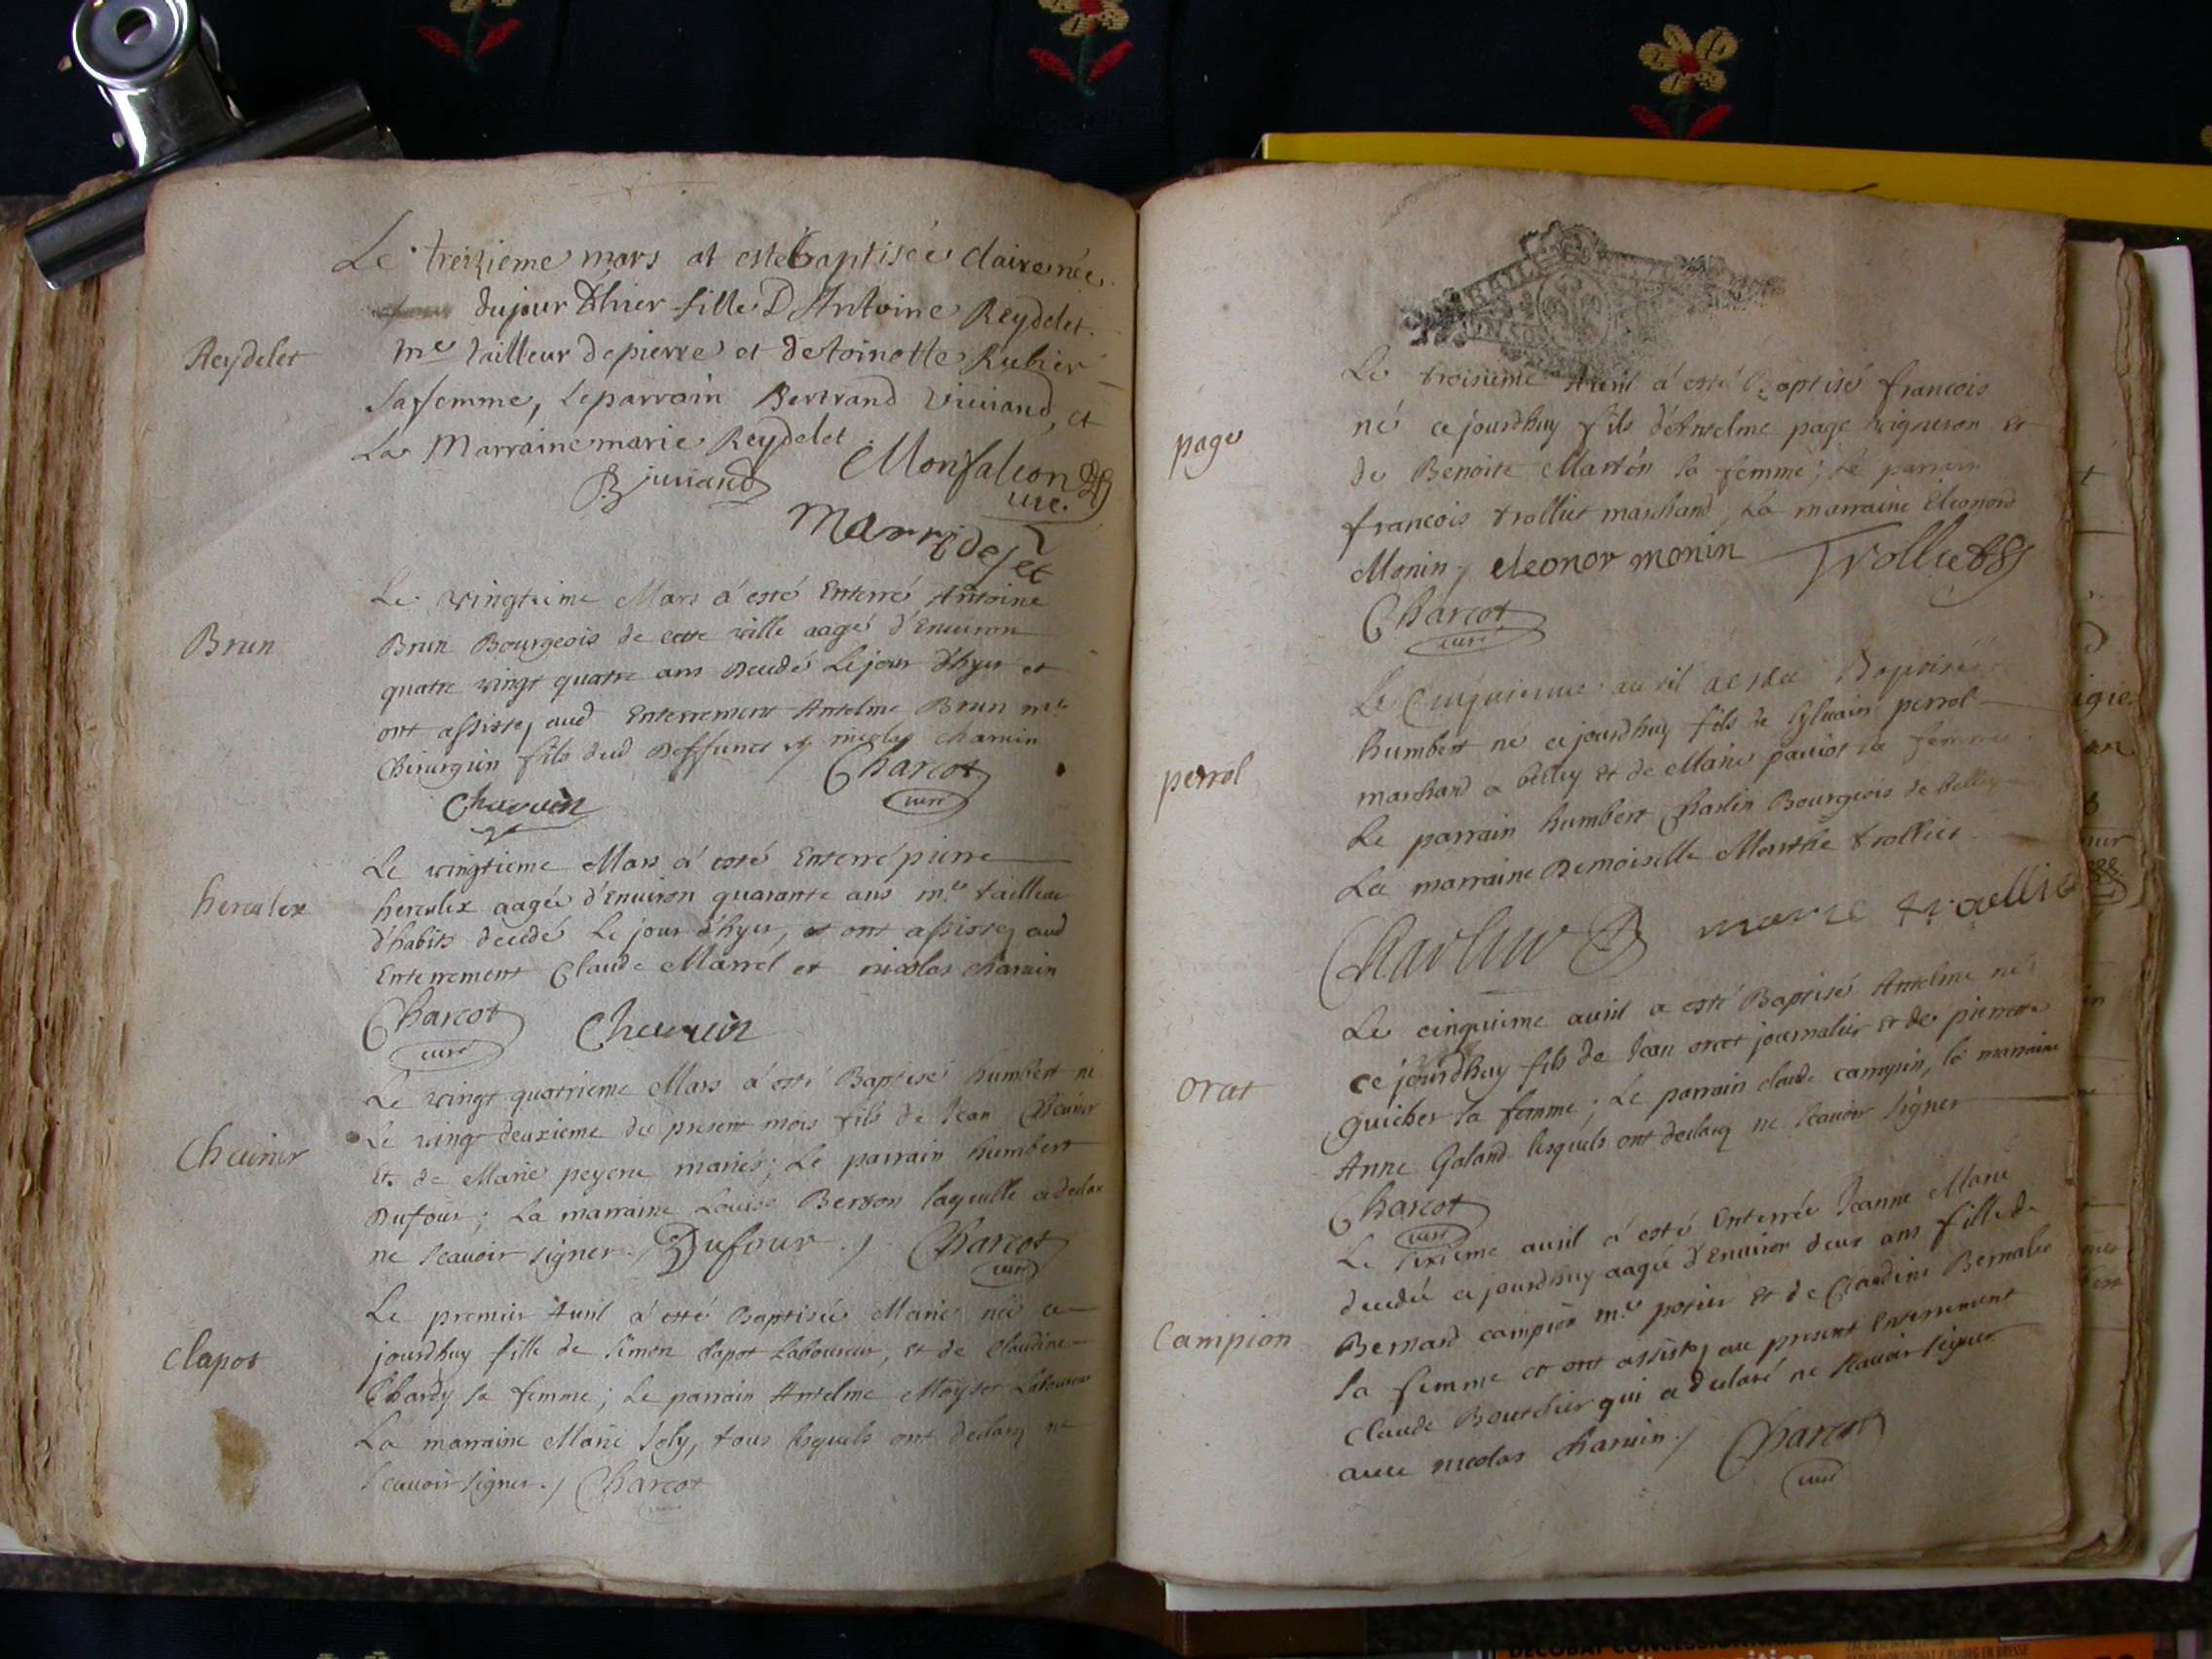 Le treizieme mars at esté baptisée claire née
du jour d'hier fille D Antoine Reydelet
Reydelet
me tailleur de pierre et de toinette Rubier
sa femme, le parrain Bertrand Viuiand, et
La Marraine marie Reydelet
B juuiand Monfalcon
Le vingtieme Mars a esté Enterré Antoine
Brun
Brun Bourgeois de cette ville aagé d'Enuiron
quatre vingt quatre ans decedé Le jour d'hyer et
ont assistez aud Enterrement Antelme Brun me
Chirurgien fils dud deffunct et nicolas Charuin
Charcot
curé
Le vingtieme Mars a esté Enterré pierre
herculex
herculex aagée d'Enuiron quarante ans me tailleur
d'habits decedé Le jour d'hyer, et ont assistez aud
Enterrement Claude Marrel et nicolas charuin
Charcot
curé
Le vingt quatrieme Mars a esté Baptisé humbert né
Le vingt deuxieme du present mois fils de Jean
et de Marie mariés; Le parrain humbert
Dufour; La marraine Louise laquelle a declaré
ne scauoir signer./ Dufour ./ Charcot
curé
Le premier Auril a esté Baptisée Marie née ce
Clapot
jourdhuy fille de Simon Clapot Laboureur, et de Claudine
Chardy sa femme; Le parrain Antelme Laboureur
La marraine Marie Joly, tous lesquels ont declarez ne
scauoir signer./ Charcot
Le troisieme Auril a esté Baptisé francois
page
né ce jourdhuy fils d'Antelme page vigneron et
de Benoite Martin sa femme; Le parrain
francois trolliet marchand, La marraine Eleonord
Monin./ eleonor monin Trolliet
Charcot
curé
Le Cinquieme auril a esté Baptisé
humbert né ce jourdhuy fils de Syluain perrol
perrol
marchand a belley et de Marie sa femme
Le parrain humbert Charlin Bourgeois de Belley
La marraine Demoiselle Marthe trolliet
Le cinquieme auril a esté Baptisé Antelme né
orat
ce jourdhuy fils de Jean orat journalier et de pierrette
guicher sa femme; Le parrain claude campion, la marraine
Anne Galand lesquels ont declarez ne scauoir signer
Charcot
curé
Le sixieme auril a esté Enterrée Jeanne Marie
decedée ce jourdhuy aagée d'Enuiron deux ans fille de
Campion
Bernard campion me potier et de Claudine
sa femme et ont assistez au present Enterrement
Claude qui a declaré ne scauoir signer
auec nicolas charuin./ Charcot
curé